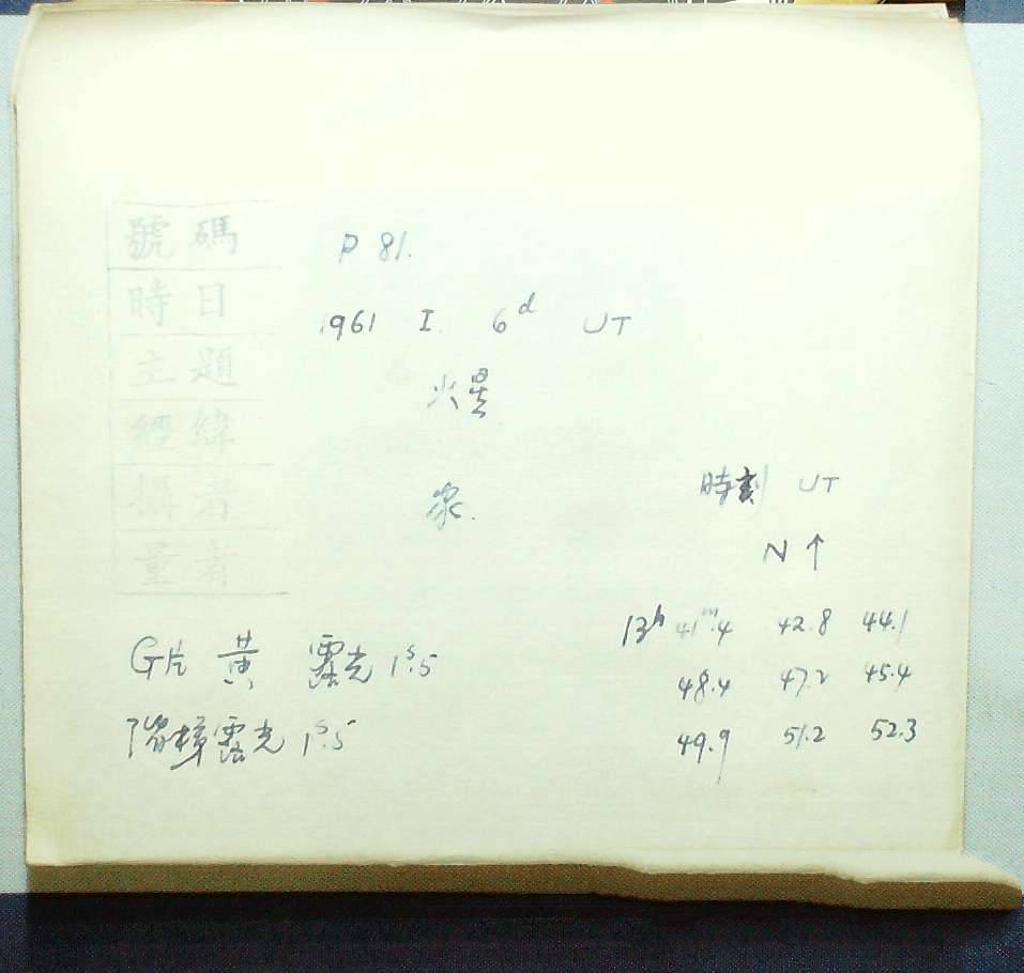 號碼 P 81.
時日 1961 I. 6d UT
主題 火星
經緯
攝者
量者
時刻 UT
N ↑
13h 41m.4 42.8 44.1
48.4 47.2 45.4
49.9 51.2 52.3
G片 黄 露光 1s.5
階梯露光 1s.5